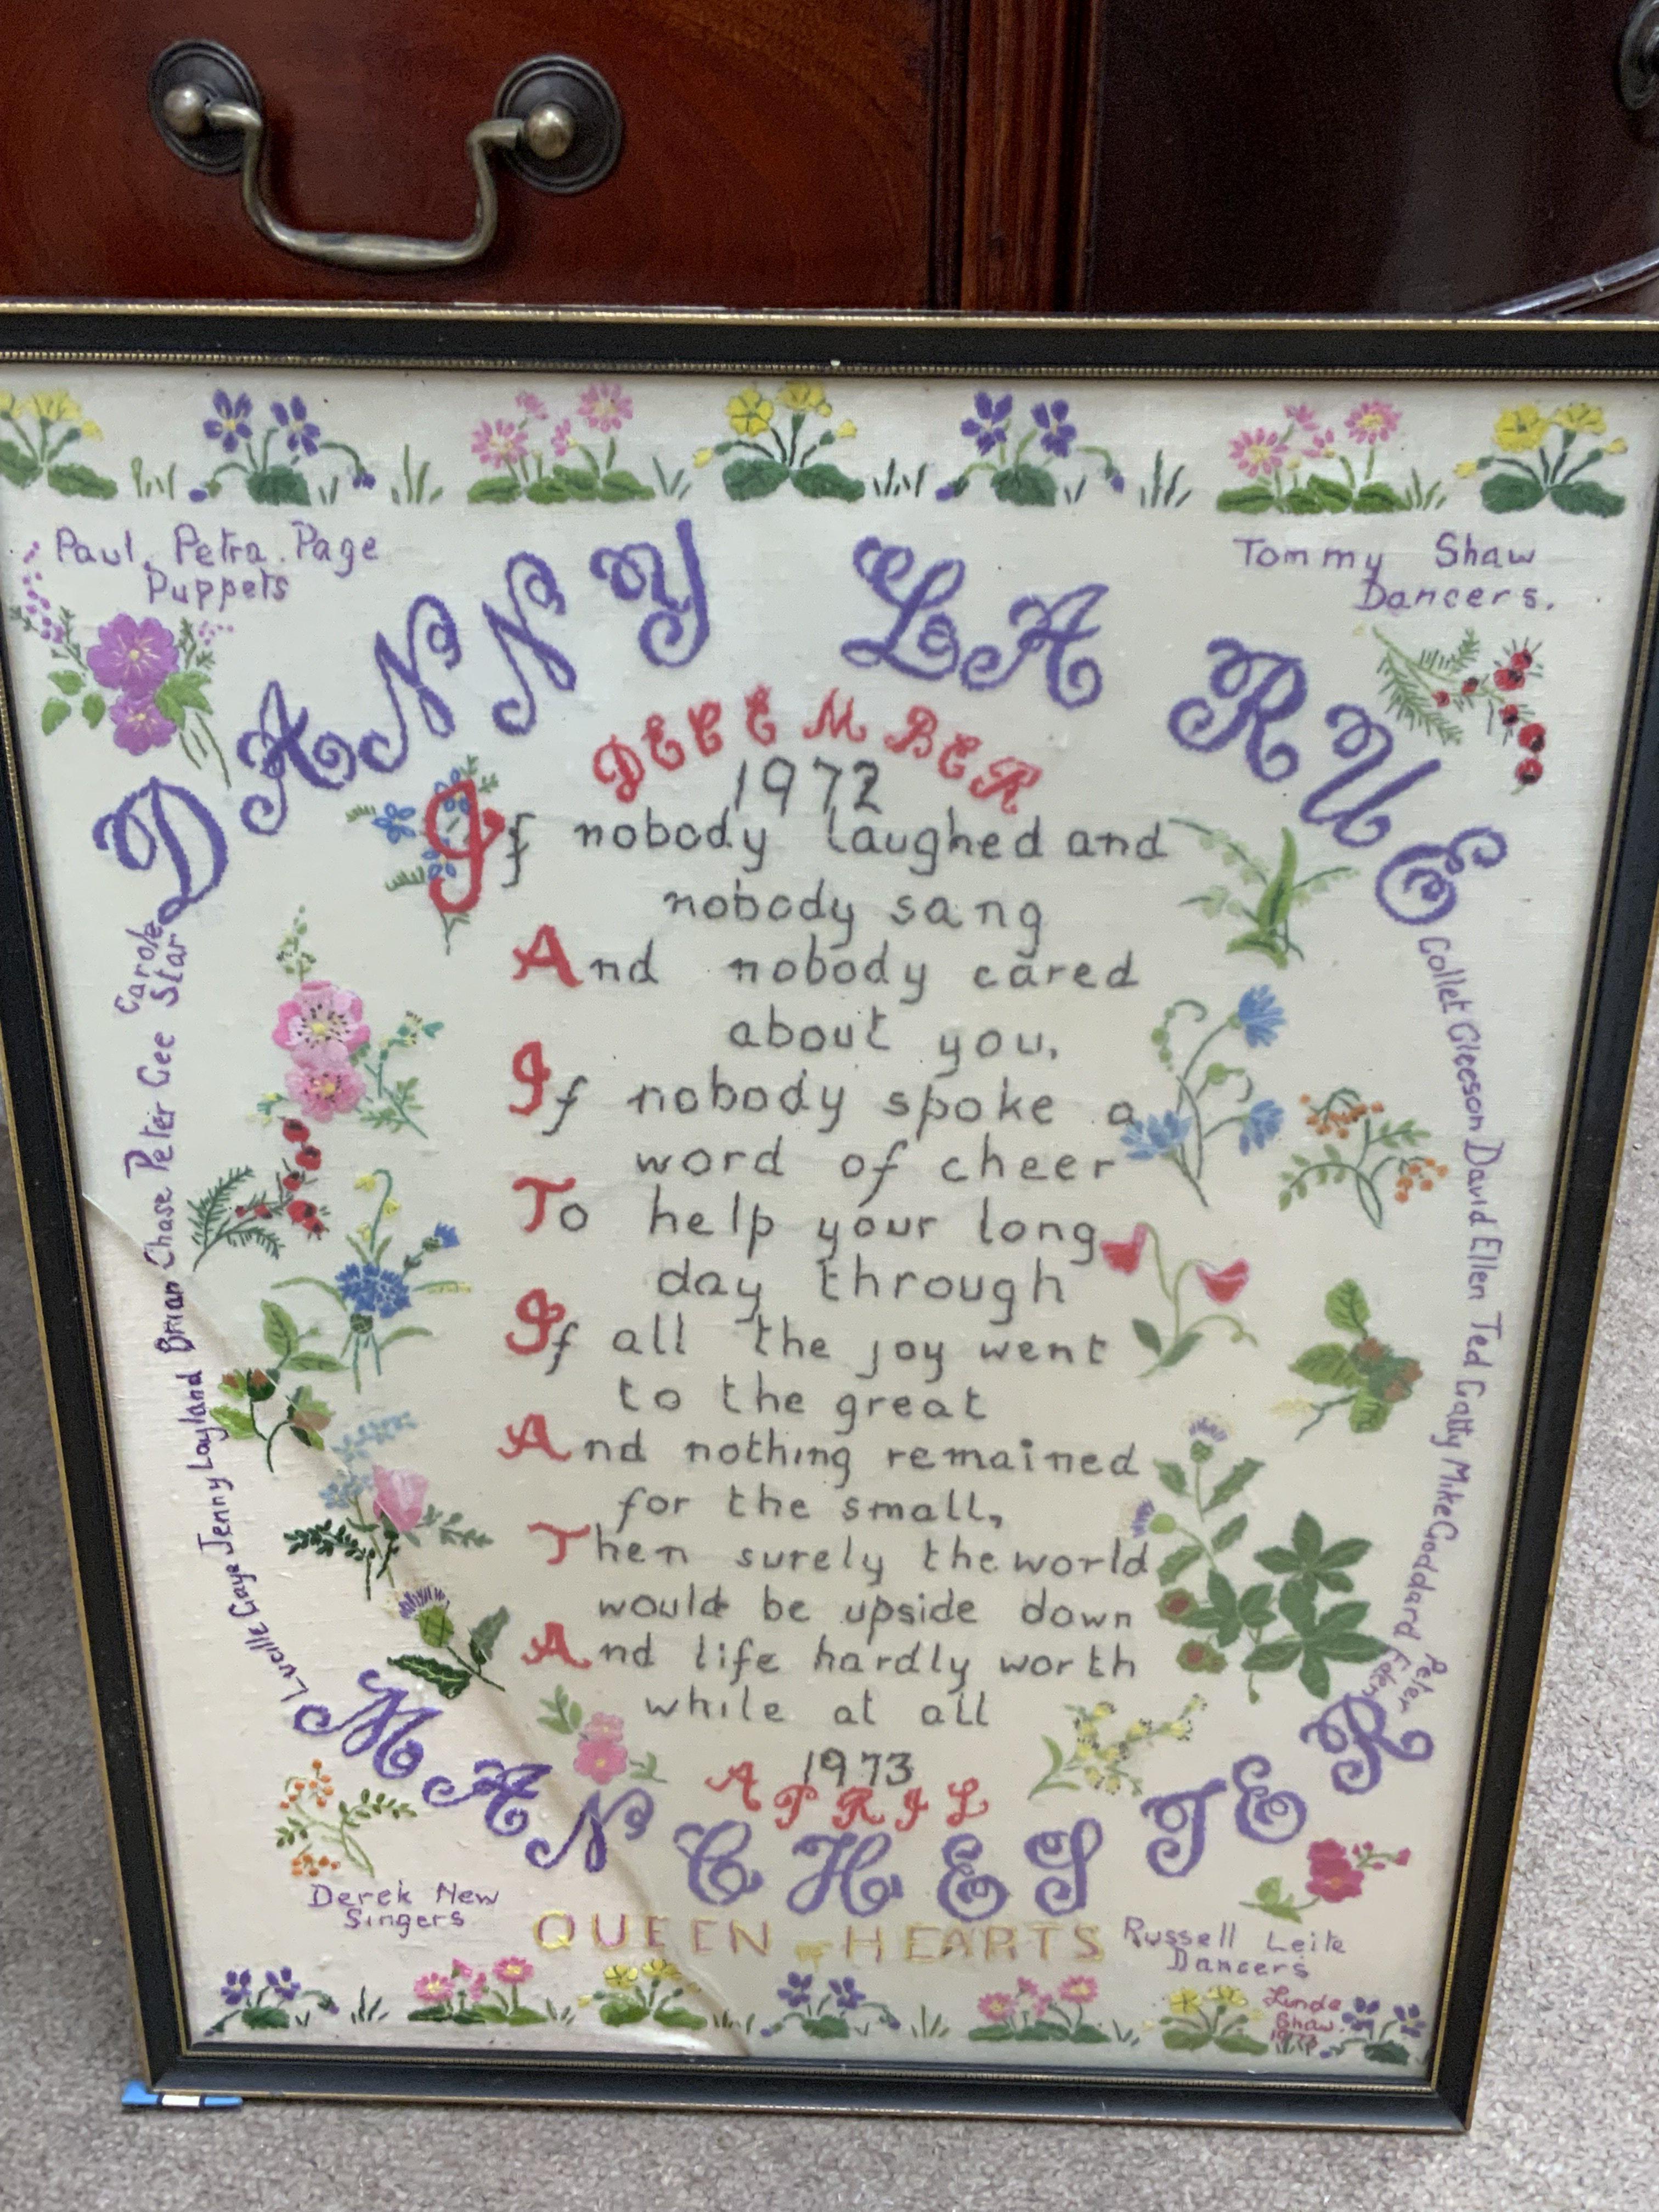 Paul. Petra. Page
Puppets
Tommy Shaw
Dancers.
DANNY LA RUE
DECEMBER
1972
If nobody laughed and
nobody sang
And nobody cared
about you,
If nobody spoke a
word of cheer
To help your long
day through
If all the joy went
to the great
And nothing remained
for the small,
Then surely the world
would be upside down
And life hardly worth
while at all
1973
APRIL
MANCHESTER
Lucille Gaye Jenny Layland Brian Chase Peter Gee Carole Star
Collet Gleeson David Ellen Ted Gatty Mike Goddard Peter Eden
Derek New
Singers
QUEEN HEARTS
Russell Leite
Dancers
Linda
Shaw.